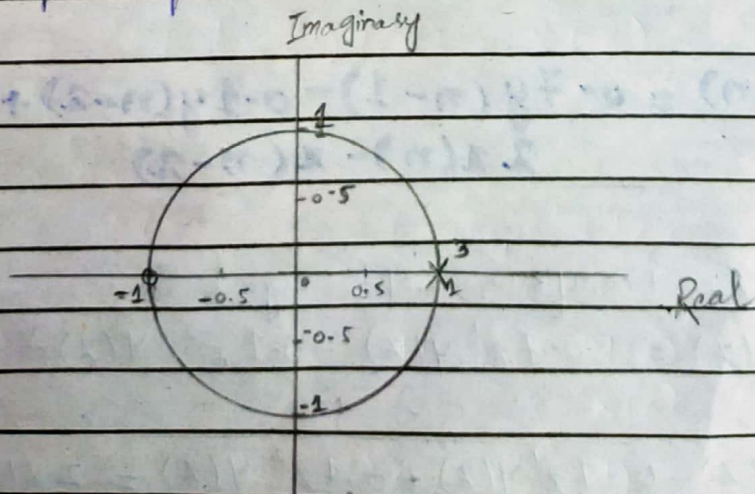 Imaginary
1
0.5
3
-1 -0.5 0 0.5 1
Real
-0.5
-1